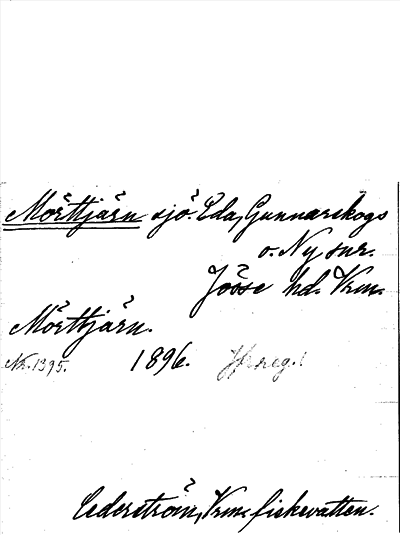 Mörttjärn sjö. Eda, Gunnarskogs
o. Ny snr.
Jösse hd. Vrm.
Mörttjärn.
Nr. 1395. 1896.
Cederström, Vrm. fiskevatten.